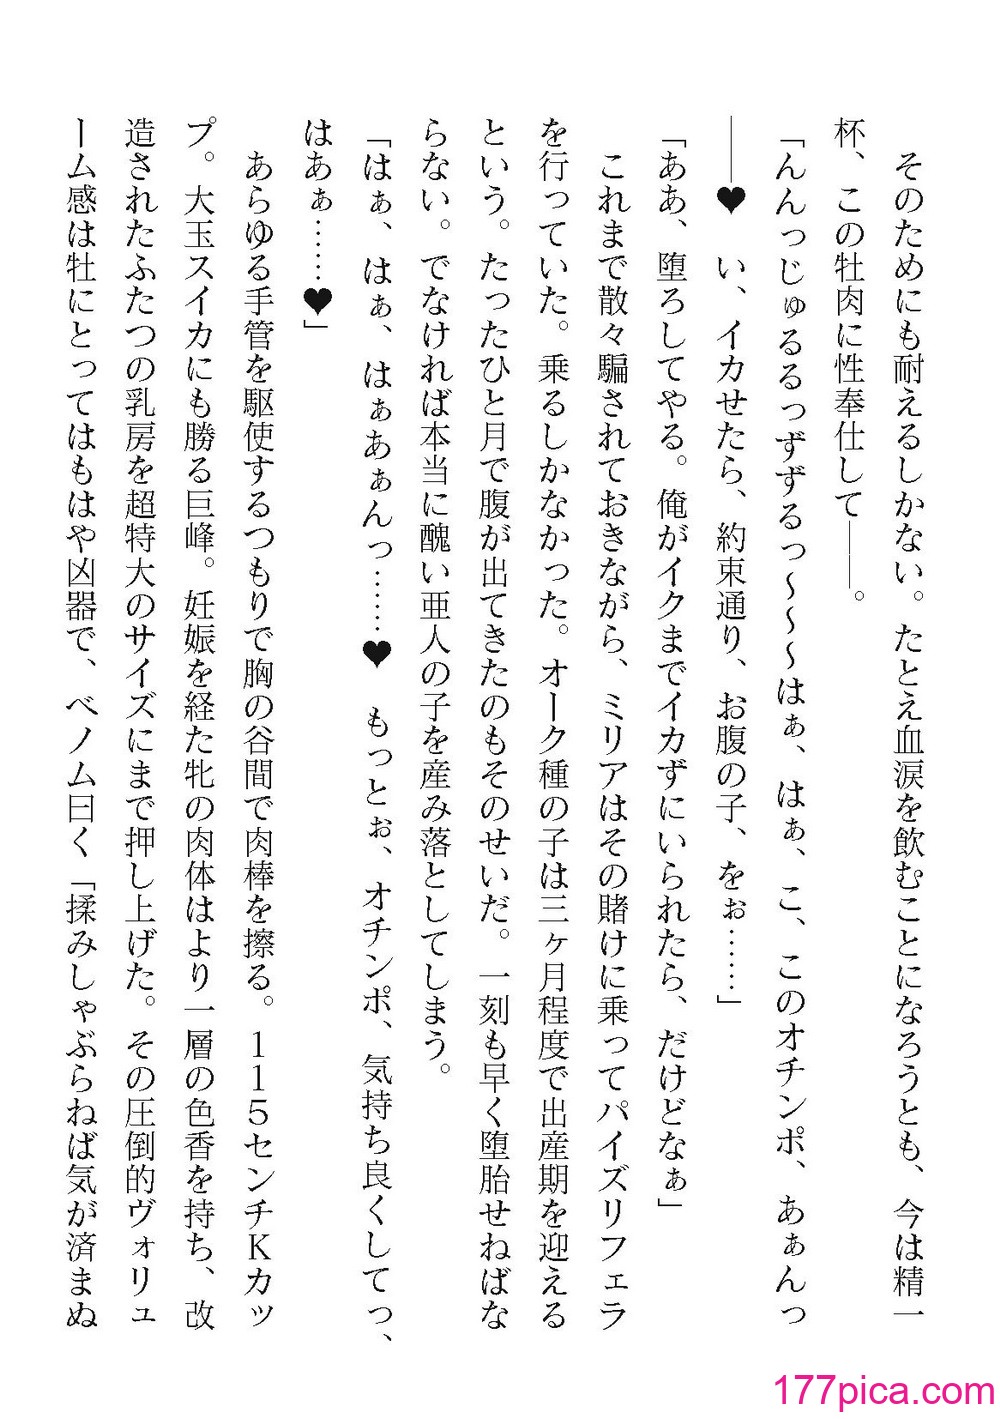 そのためにも耐えるしかない。たとえ血涙を飲むことになろうとも、今は精一
杯、この牡肉に性奉仕して――。
「んんっじゅるるっずずるっ～～～はぁ、はぁ、こ、このオチンポ、あぁんっ
――♥　い、イカせたら、約束通り、お腹の子、をぉ……」
「ああ、堕ろしてやる。俺がイクまでイカずにいられたら、だけどなぁ」
これまで散々騙されておきながら、ミリアはその賭けに乗ってパイズリフェラ
を行っていた。乗るしかなかった。オーク種の子は三ヶ月程度で出産期を迎える
という。たったひと月で腹が出てきたのもそのせいだ。一刻も早く堕胎せねばな
らない。でなければ本当に醜い亜人の子を産み落としてしまう。
「はぁ、はぁ、はぁあぁんっ……♥　もっとぉ、オチンポ、気持ち良くしてっ、
はあぁ……♥」
あらゆる手管を駆使するつもりで胸の谷間で肉棒を擦る。１１５センチＫカッ
プ。大玉スイカにも勝る巨峰。妊娠を経た牝の肉体はより一層の色香を持ち、改
造されたふたつの乳房を超特大のサイズにまで押し上げた。その圧倒的ヴォリュ
ーム感は牡にとってはもはや凶器で、ベノム曰く「揉みしゃぶらねば気が済まぬ
177pica.com